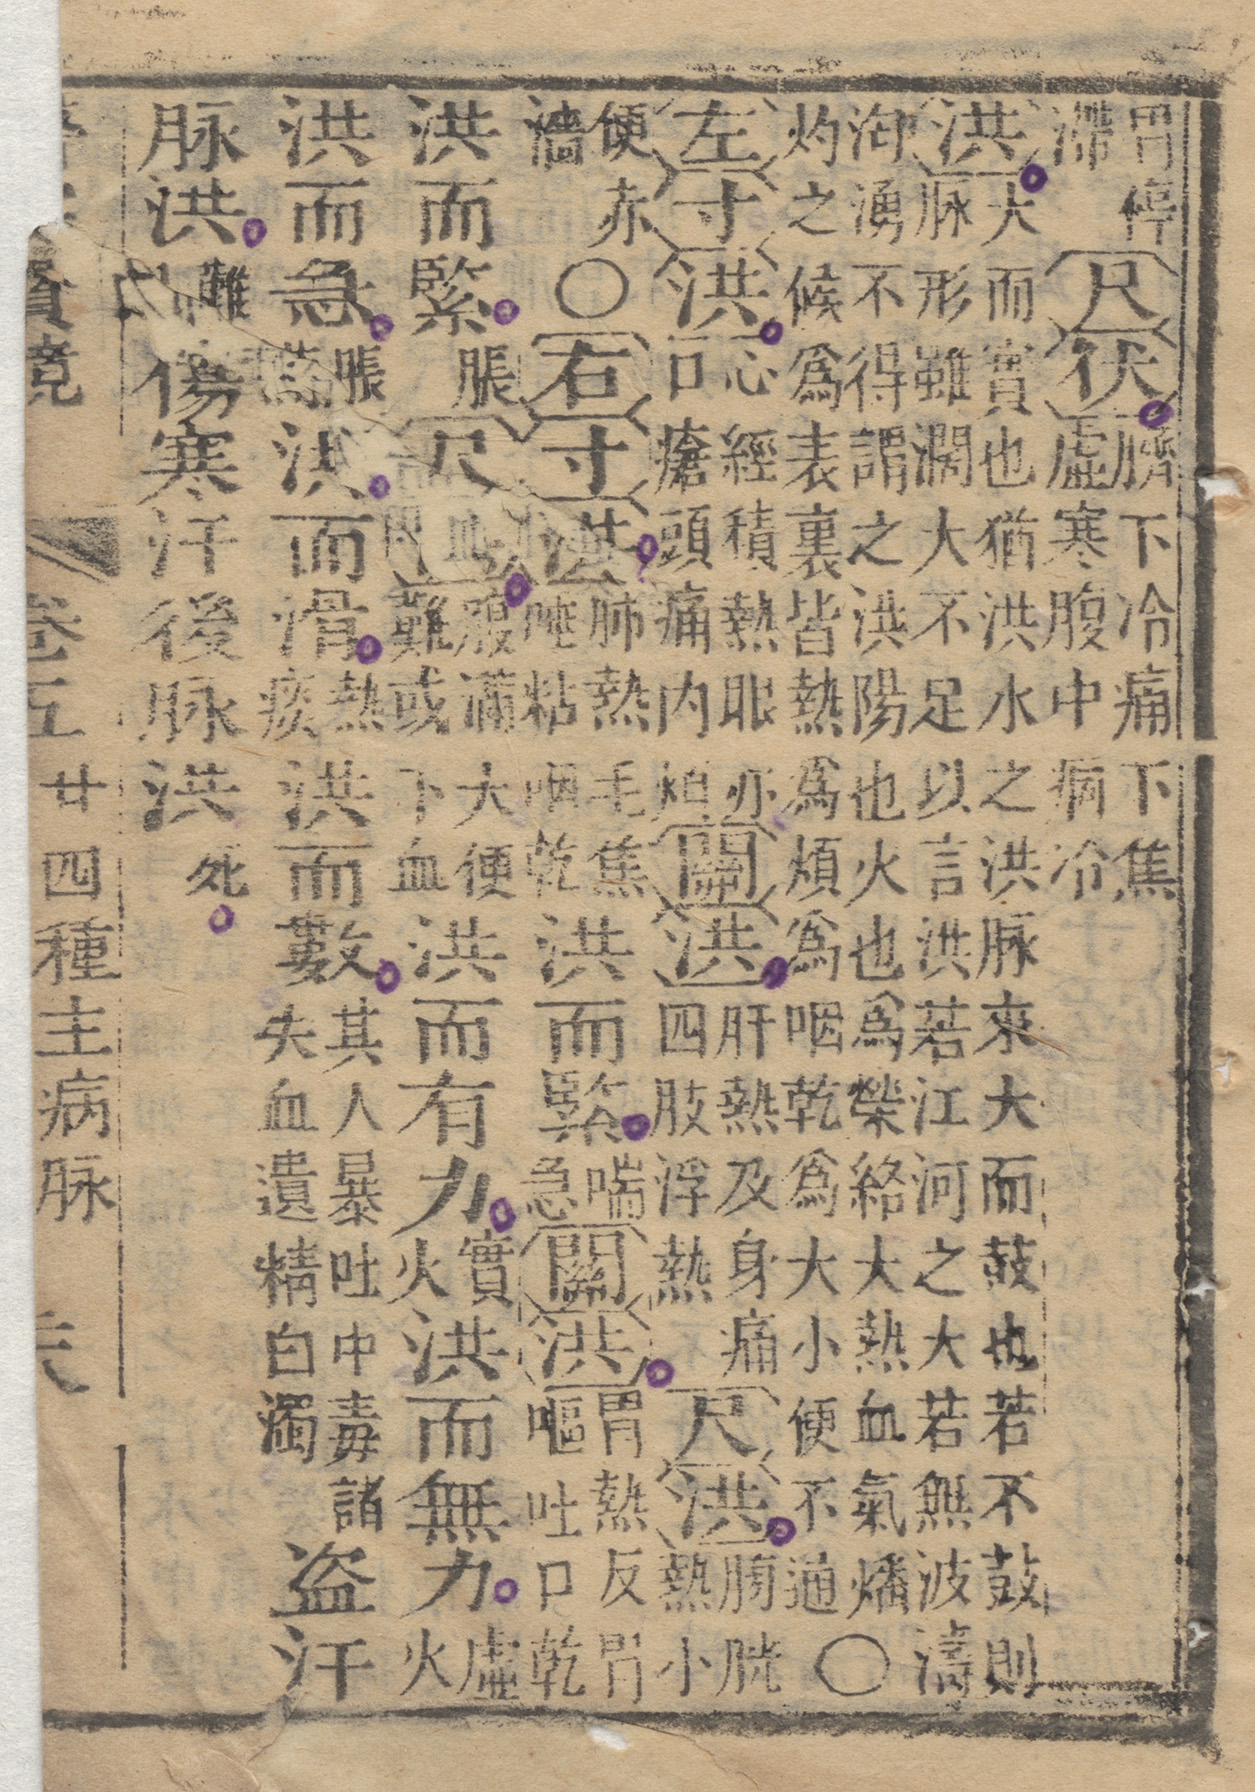 胃停滯尺伏臍下冷痛下焦虛寒腹中病冷
洪大而實也猶洪水之洪脉來大而鼓也若不鼓則脉形雖濶大不足以言洪若江河之大若無波濤
洶湧不得謂之洪陽也火也為榮絡大熱血氣燔灼之候為表裏皆熱為煩為咽乾為大小便不通○
左寸洪心經積熱眼亦口瘡頭痛內關洪肝熱及身痛四肢浮熱尺洪膀胱熱小
便赤濇○右寸洪肺熱毛焦唾粘咽乾洪而緊喘急關洪胃熱反胃嘔吐口乾
洪而緊脹尺腹滿大便難或下血洪而有力實火洪而無力虛火
洪而急脹洪而滑熱痰洪而數其人暴吐中毒諸失血遺精白濁盜汗
脉洪難傷寒汗後脉洪死
寶鏡 卷五 廿四種主病脉